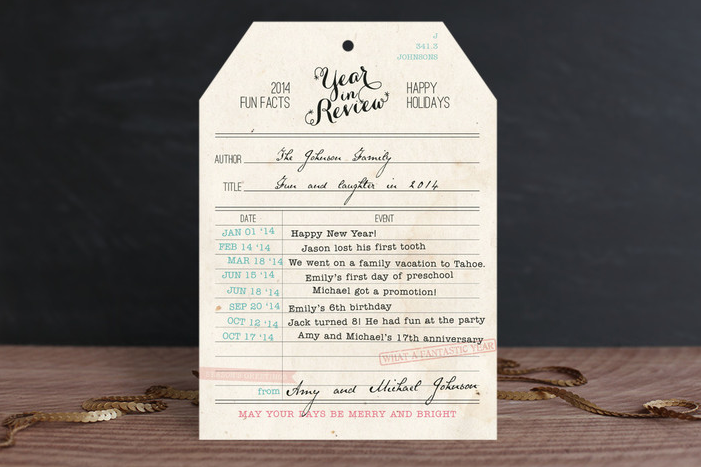 J
341.3
JOHNSONS
2014
FUN FACTS
Year
in
Review
HAPPY
HOLIDAYS
AUTHOR The Johnson Family
TITLE Fun and laughter in 2014
DATE EVENT
JAN 01 '14 Happy New Year!
FEB 14 '14 Jason lost his first tooth
MAR 18 '14 We went on a family vacation to Tahoe.
JUN 15 '14 Emily's first day of preschool
JUN 18 '14 Michael got a promotion!
SEP 20 '14 Emily's 6th birthday
OCT 12 '14 Jack turned 8! He had fun at the party
OCT 17 '14 Amy and Michael's 17th anniversary
WHAT A FANTASTIC YEAR
from Amy and Michael Johnson
MAY YOUR DAYS BE MERRY AND BRIGHT